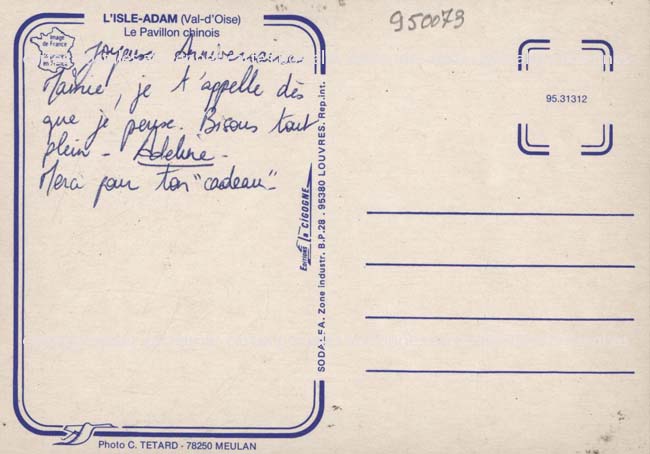 L'ISLE-ADAM (Val-d'Oise)
Le Pavillon chinois
950073
Image
de France
en France
Joyeux Anniversaire
Mamie, je t'appelle dès
que je peux. Bisous tout
plein - Adeline -
Merci pour ton "cadeau"
95.31312
Editions la CIGOGNE
SODALFA. Zone industr. B.P.28 - 95380 LOUVRES. Rep.int.
Photo C. TETARD - 78250 MEULAN